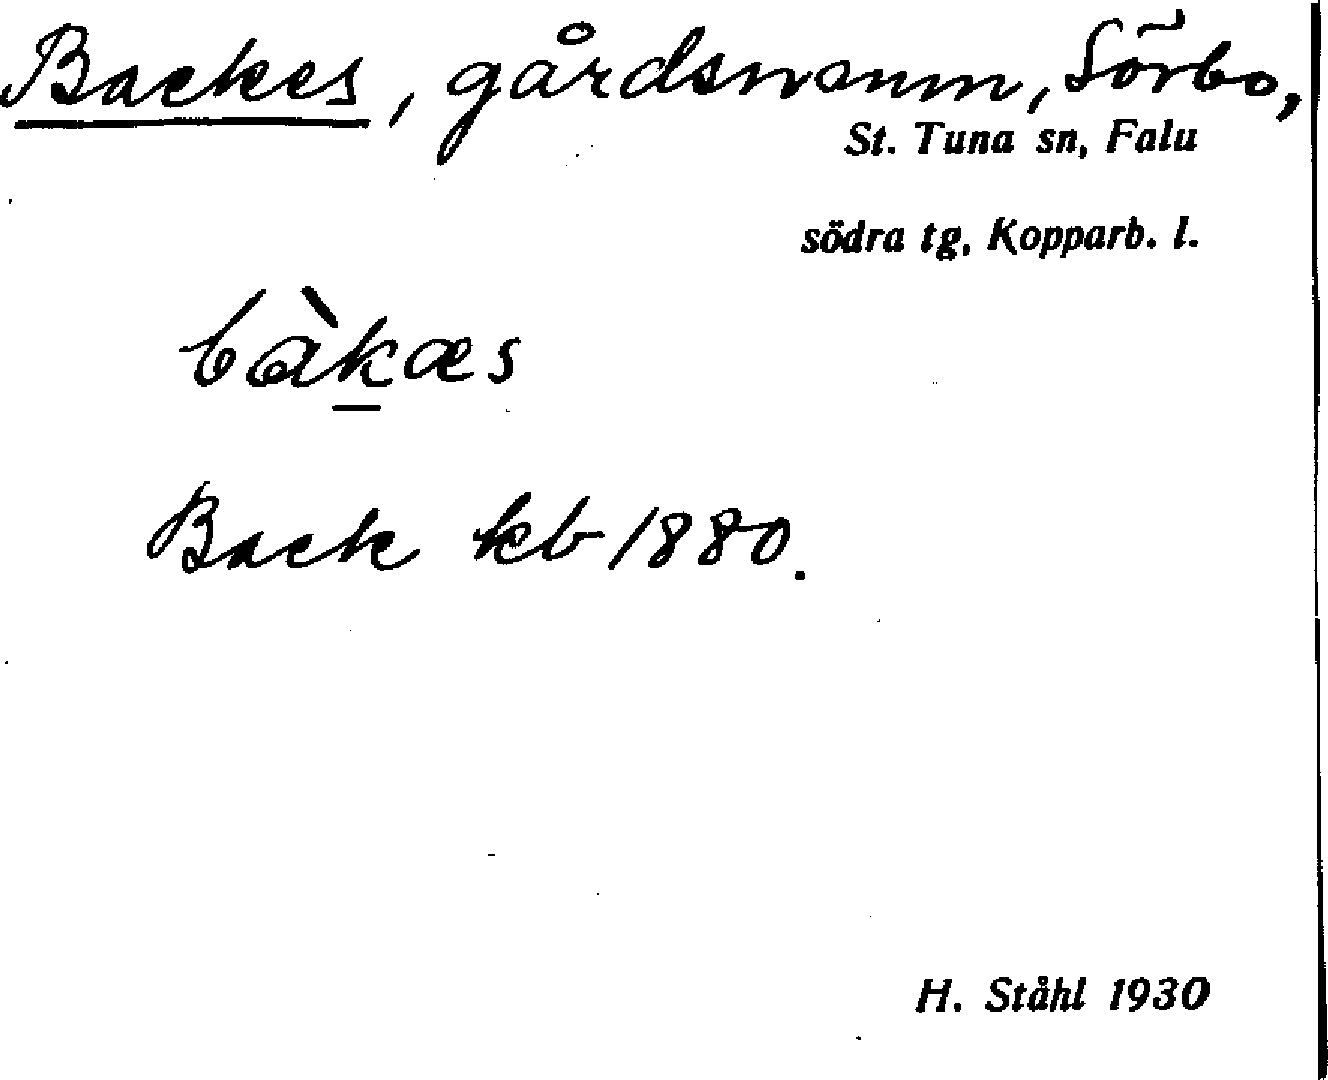 Backes, gårdsnamn, Sörbo,
St. Tuna sn, Falu
södra tg, Kopparb. l.
bàkæs
Back kb 1880.
H. Ståhl 1930